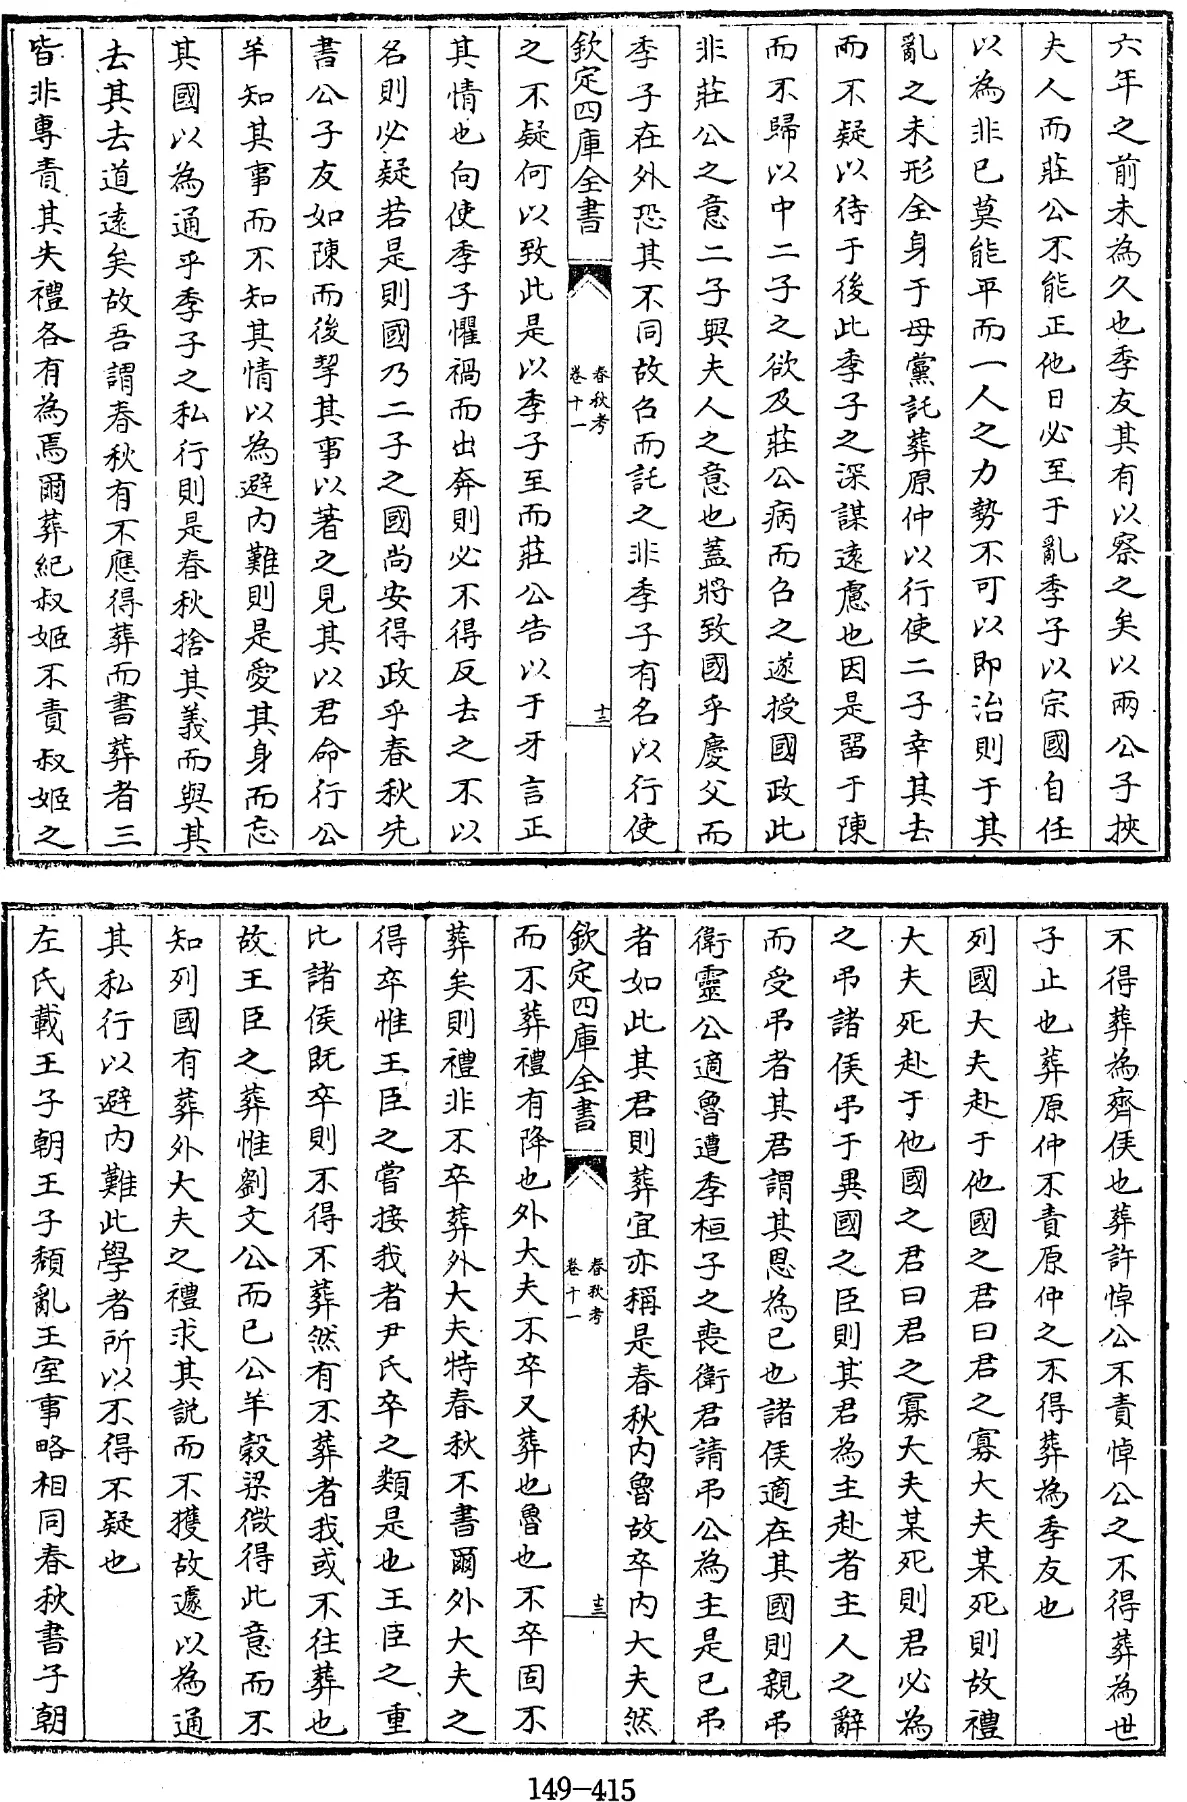 六年之前未為久也季友其有以察之矣以兩公子挾
夫人而莊公不能正他日必至于亂季子以宗國自任
以為非已莫能平而一人之力勢不可以即治則于其
亂之未形全身于母黨託葬原仲以行使二子幸其去
而不疑以待于後此季子之深謀逺慮也因是留于陳
而不歸以中二子之欲及莊公病而召之遂授國政此
非莊公之意二子與夫人之意也蓋將致國乎慶父而
季子在外恐其不同故召而託之非季子有名以行使
欽定四庫全書
春秋考
卷十一
十三
之不疑何以致此是以季子至而莊公告以于牙言正
其情也向使季子懼禍而出奔則必不得反去之不以
名則必疑若是則國乃二子之國尚安得政乎春秋先
書公子友如陳而後挈其事以著之見其以君命行公
羊知其事而不知其情以為避内難則是愛其身而忘
其國以為通乎季子之私行則是春秋捨其義而與其
去其去道逺矣故吾謂春秋有不應得葬而書葬者三
皆非專責其失禮各有為焉爾葬紀叔姬不責叔姬之
不得葬為齊侯也葬許悼公不責悼公之不得葬為世
子止也葬原仲不責原仲之不得葬為季友也
列國大夫赴于他國之君曰君之寡大夫某死則故禮
大夫死赴于他國之君曰君之寡大夫某死則君必為
之弔諸侯弔于異國之臣則其君為主赴者主人之辭
而受弔者其君謂其恩為已也諸侯適在其國則親弔
衛靈公適魯遭季桓子之喪衛君請弔公為主是已弔
者如此其君則葬宜亦稱是春秋内魯故卒内大夫然
欽定四庫全書
春秋考
卷十一
十三
而不葬禮有降也外大夫不卒又葬也魯也不卒固不
葬矣則禮非不卒葬外大夫特春秋不書爾外大夫之
得卒惟王臣之嘗接我者尹氏卒之類是也王臣之重
比諸侯既卒則不得不葬然有不葬者我或不往葬也
故王臣之葬惟劉文公而已公羊穀梁微得此意而不
知列國有葬外大夫之禮求其說而不獲故遽以為通
其私行以避内難此學者所以不得不疑也
左氏載王子朝王子頽亂王室事略相同春秋書子朝
149-415